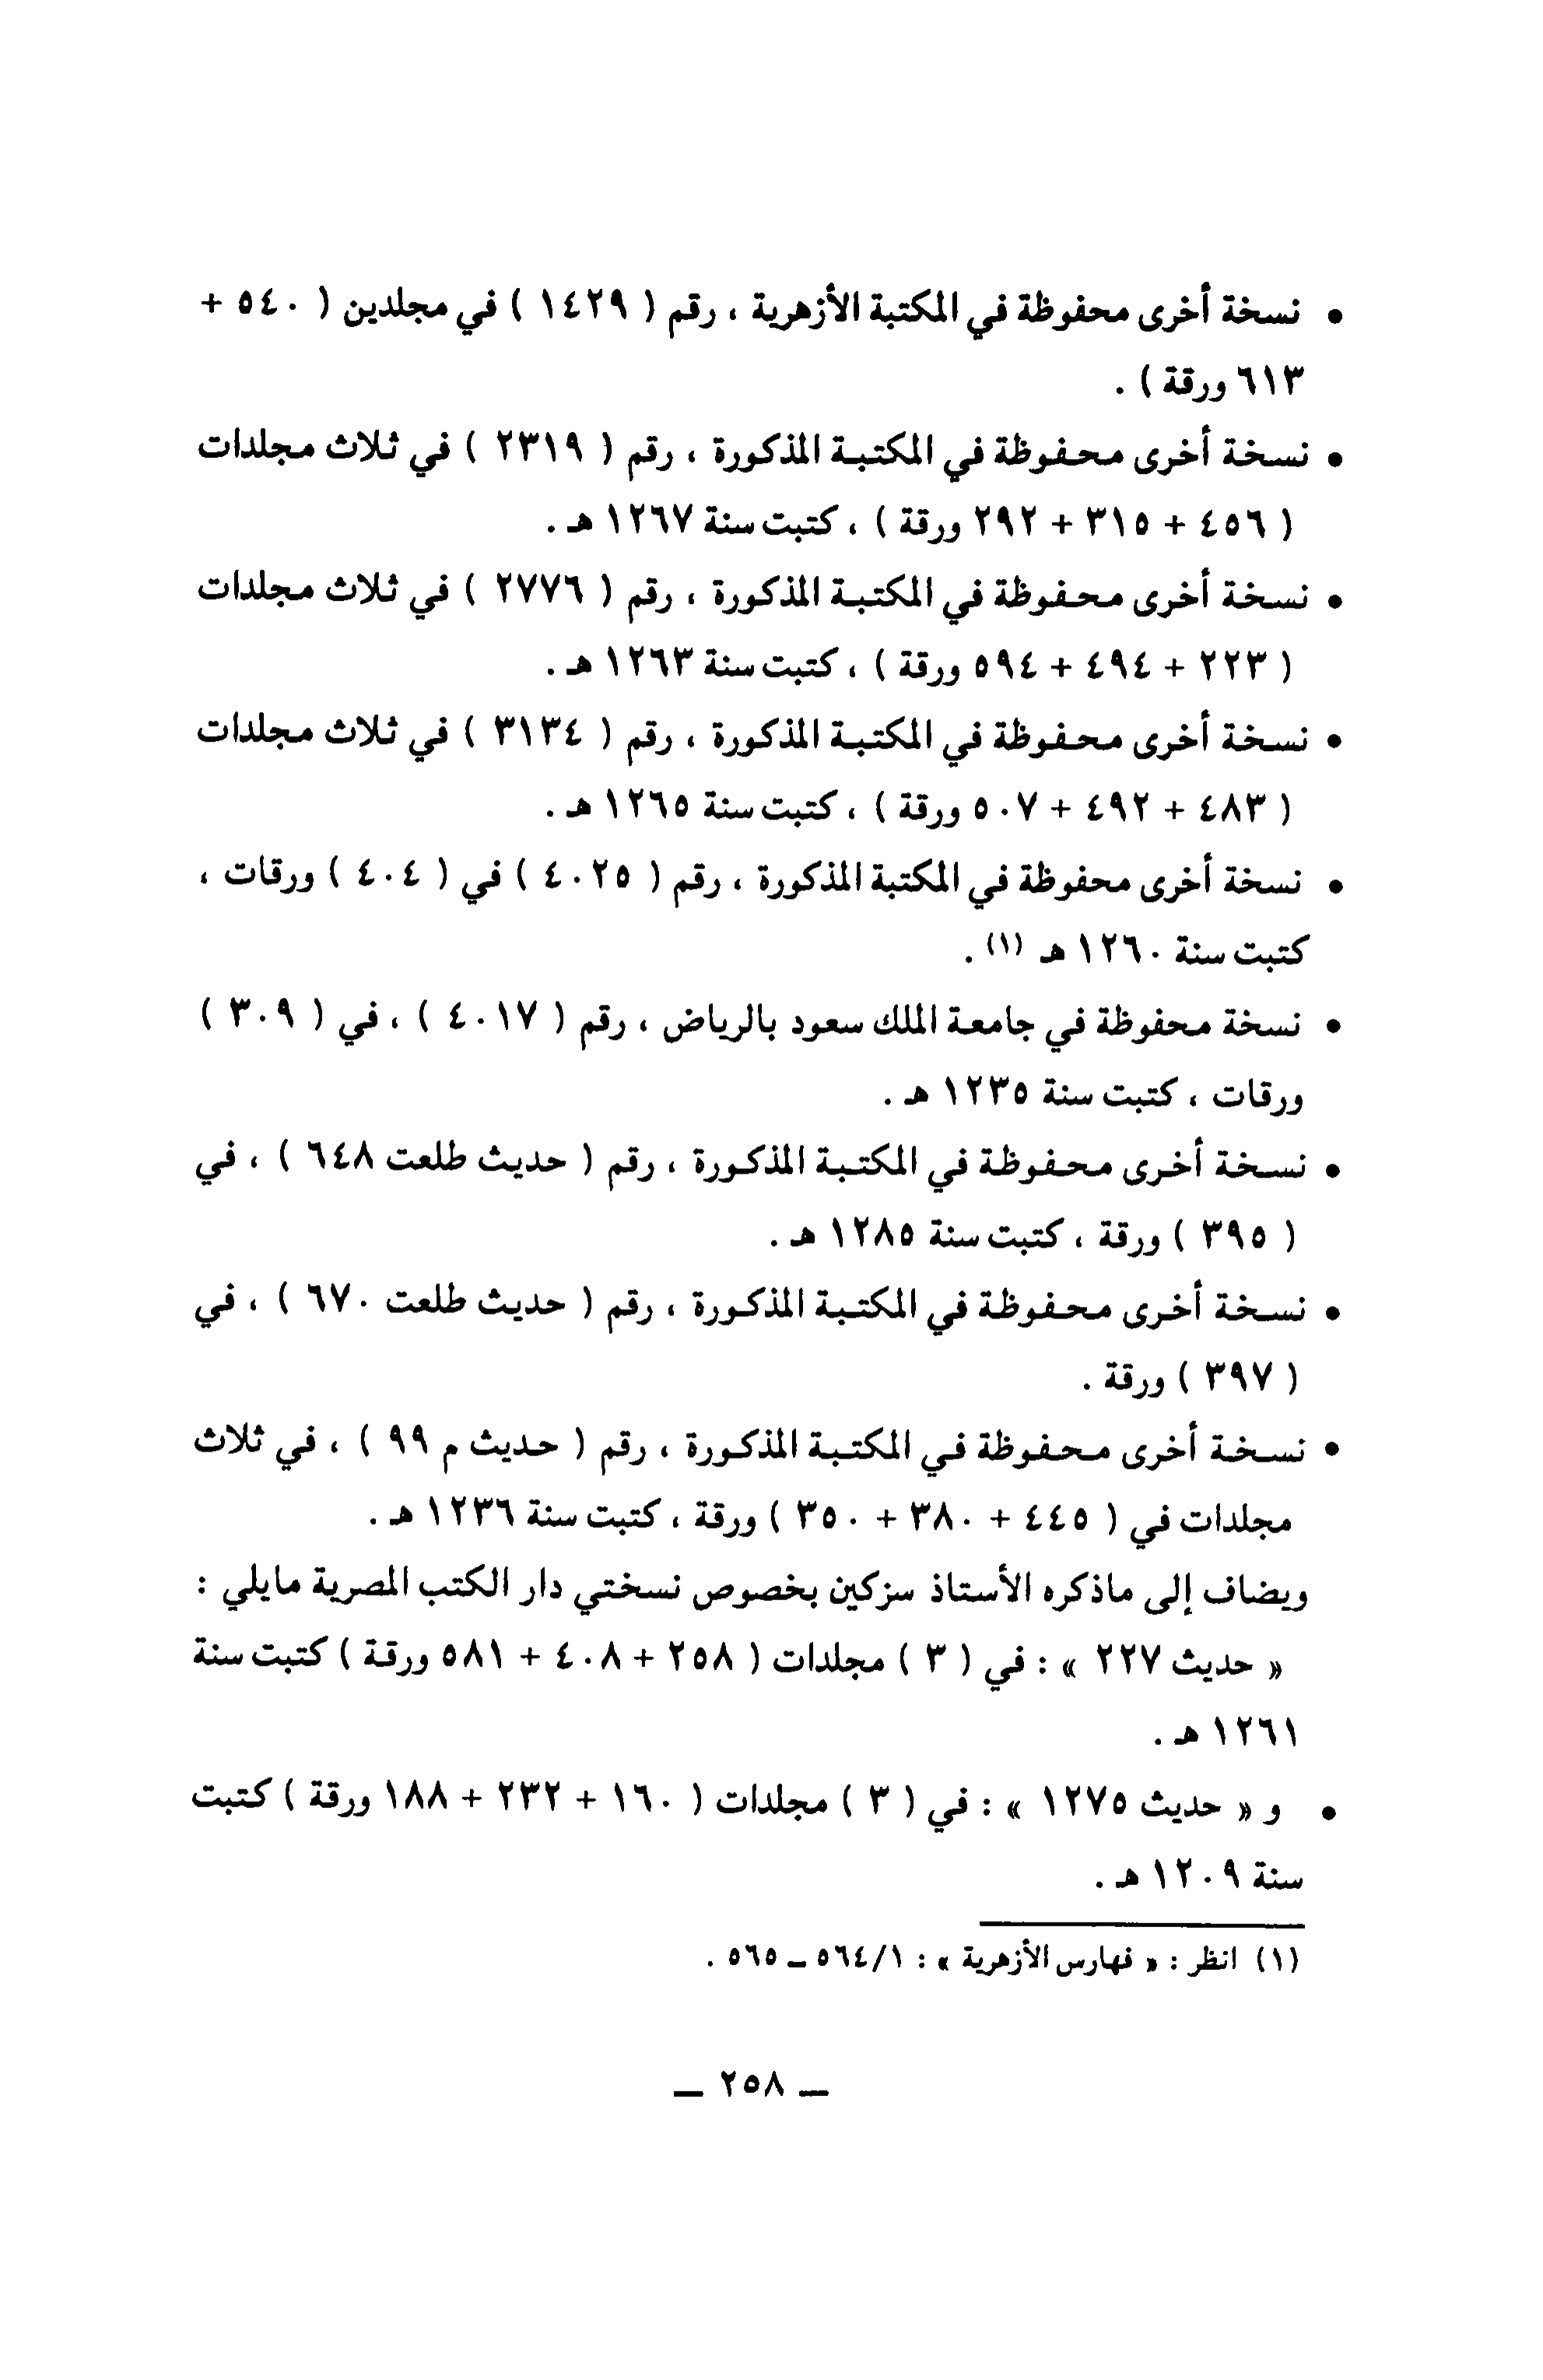 • نسخة أخرى محفوظة في المكتبة الأزهرية ، رقم ( ١٤٢٩ ) في مجلدين ( ٥٤٠ +
٦١٣ ورقة ) .
• نسخة أخرى محفوظة في المكتبة المذكورة ، رقم ( ٢٣١٩ ) في ثلاث مجلدات
( ٤٥٦ + ٣١٥ + ٢٩٢ ورقة ) ، كتبت سنة ١٢٦٧ هـ .
• نسخة أخرى محفوظة في المكتبة المذكورة ، رقم ( ٢٧٧٦ ) في ثلاث مجلدات
( ٢٢٣ + ٤٩٤ + ٥٩٤ ورقة ) ، كتبت سنة ١٢٦٣ هـ .
• نسخة أخرى محفوظة في المكتبة المذكورة ، رقم ( ٣١٣٤ ) في ثلاث مجلدات
( ٤٨٣ + ٤٩٢ + ٥٠٧ ورقة ) ، كتبت سنة ١٢٦٥ هـ .
• نسخة أخرى محفوظة في المكتبة المذكورة ، رقم ( ٤٠٢٥ ) في ( ٤٠٤ ) ورقات ،
كتبت سنة ١٢٦٠ هـ (١) .
• نسخة محفوظة في جامعة الملك سعود بالرياض ، رقم ( ٤٠١٧ ) ، في ( ٣٠٩ )
ورقات ، كتبت سنة ١٢٣٥ هـ .
• نسخة أخرى محفوظة في المكتبة المذكورة ، رقم ( حديث طلعت ٦٤٨ ) ، في
( ٣٩٥ ) ورقة ، كتبت سنة ١٢٨٥ هـ .
• نسخة أخرى محفوظة في المكتبة المذكورة ، رقم ( حديث طلعت ٦٧٠ ) ، في
( ٣٩٧ ) ورقة .
• نسخة أخرى محفوظة في المكتبة المذكورة ، رقم ( حديث م ٩٩ ) ، في ثلاث
مجلدات في ( ٤٤٥ + ٣٨٠ + ٣٥٠ ) ورقة ، كتبت سنة ١٢٣٦ هـ .
ويضاف إلى ماذكره الأستاذ سزكين بخصوص نسختي دار الكتب المصرية مايلي :
« حديث ٢٢٧ » : في ( ٣ ) مجلدات ( ٢٥٨ + ٤٠٨ + ٥٨١ ورقة ) كتبت سنة
١٢٦١ هـ .
• و « حديث ١٢٧٥ » : في ( ٣ ) مجلدات ( ١٦٠ + ٢٣٢ + ١٨٨ ورقة ) كتبت
سنة ١٢٠٩ هـ .
(١) انظر : « فهارس الأزهرية » : ٥٦٤/١ ــ ٥٦٥ .
ــ ٢٥٨ ــ